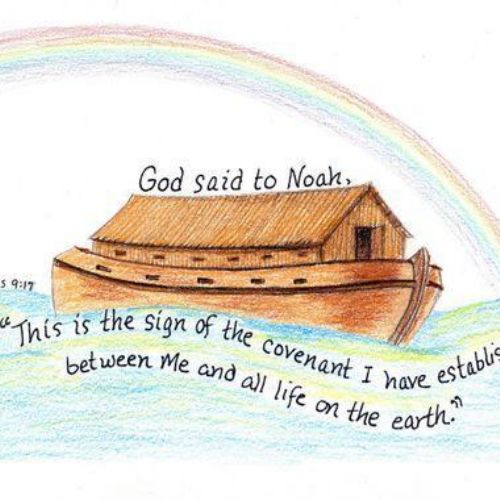 God said to Noah,
s 9:17
"This is the sign of the covenant I have establis
between Me and all life on the earth."